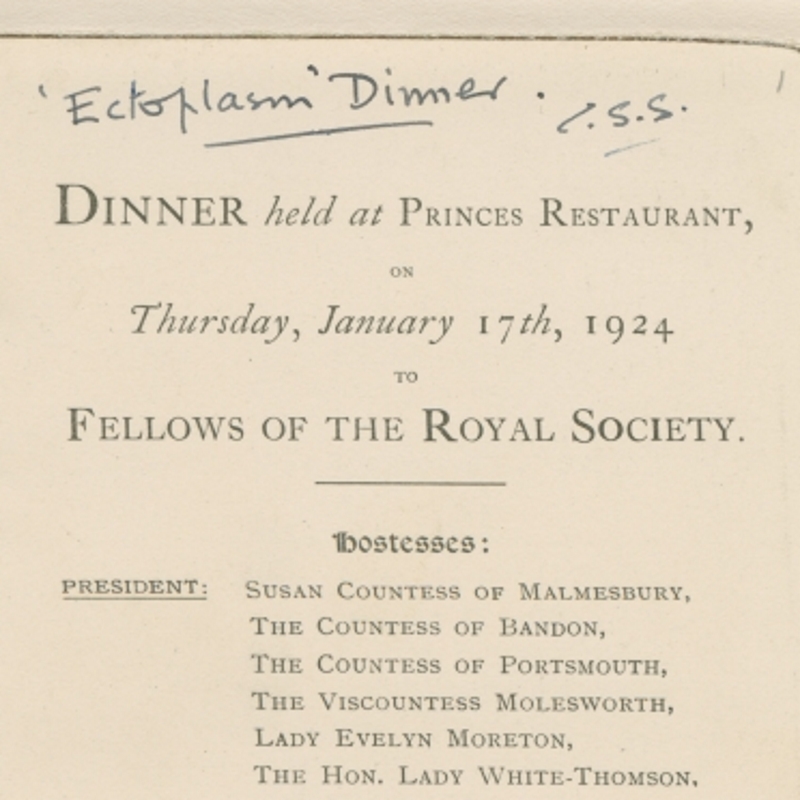 'Ectoplasm' Dinner. C.S.S.
DINNER held at PRINCES RESTAURANT,
ON
Thursday, January 17th, 1924
TO
FELLOWS OF THE ROYAL SOCIETY.
Hostesses:
PRESIDENT: SUSAN COUNTESS OF MALMESBURY,
THE COUNTESS OF BANDON,
THE COUNTESS OF PORTSMOUTH,
THE VISCOUNTESS MOLESWORTH,
LADY EVELYN MORETON,
THE HON. LADY WHITE-THOMSON,